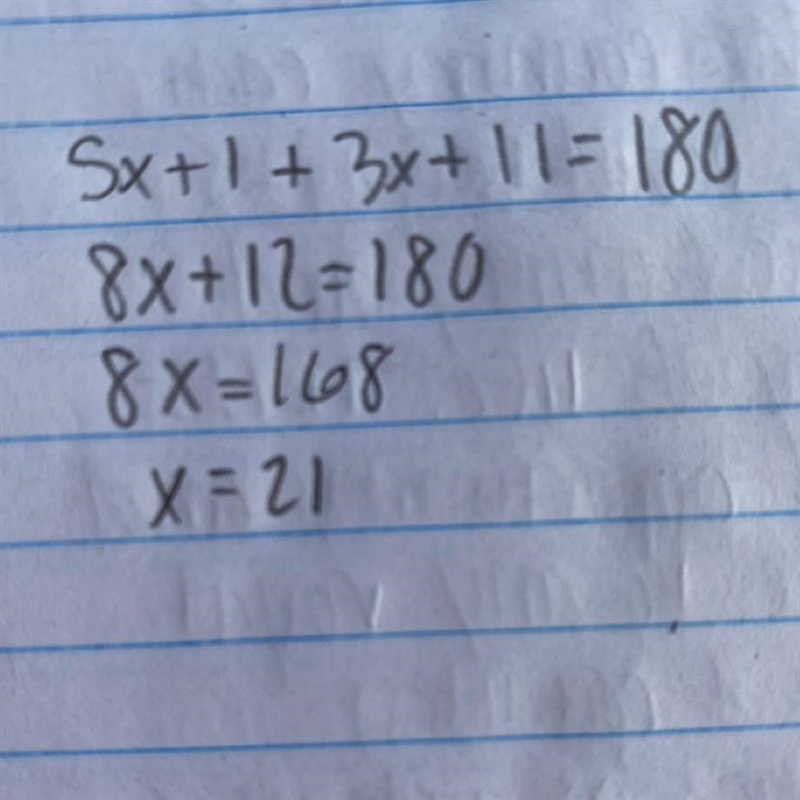 5x+1 + 3x+11=180
8x+12=180
8x=168
x=21